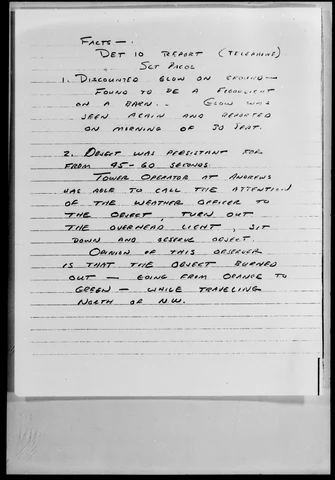 FACTS —.
DET 10 REPORT (TELEPHONE)
SGT
1. DISCOUNTED GLOW ON GROUND —
FOUND TO BE A FLOODLIGHT
ON A BARN. - GLOW WAS
SEEN AGAIN AND REPORTED
ON MORNING OF 30 SEPT.
2. OBJECT WAS PERSISTANT FOR
FROM 45-60 SECONDS.
TOWER OPERATOR AT ANDREWS
WAS ABLE TO CALL THE ATTENTION
OF THE WEATHER OFFICER TO
THE OBJECT, TURN OUT
THE OVERHEAD LIGHT, SIT
DOWN AND OBSERVE OBJECT.
OPINION OF THIS OBSERVER
IS THAT THE OBJECT BURNED
OUT — GOING FROM ORANGE TO
GREEN — WHILE TRAVELING
NORTH OF N.W.